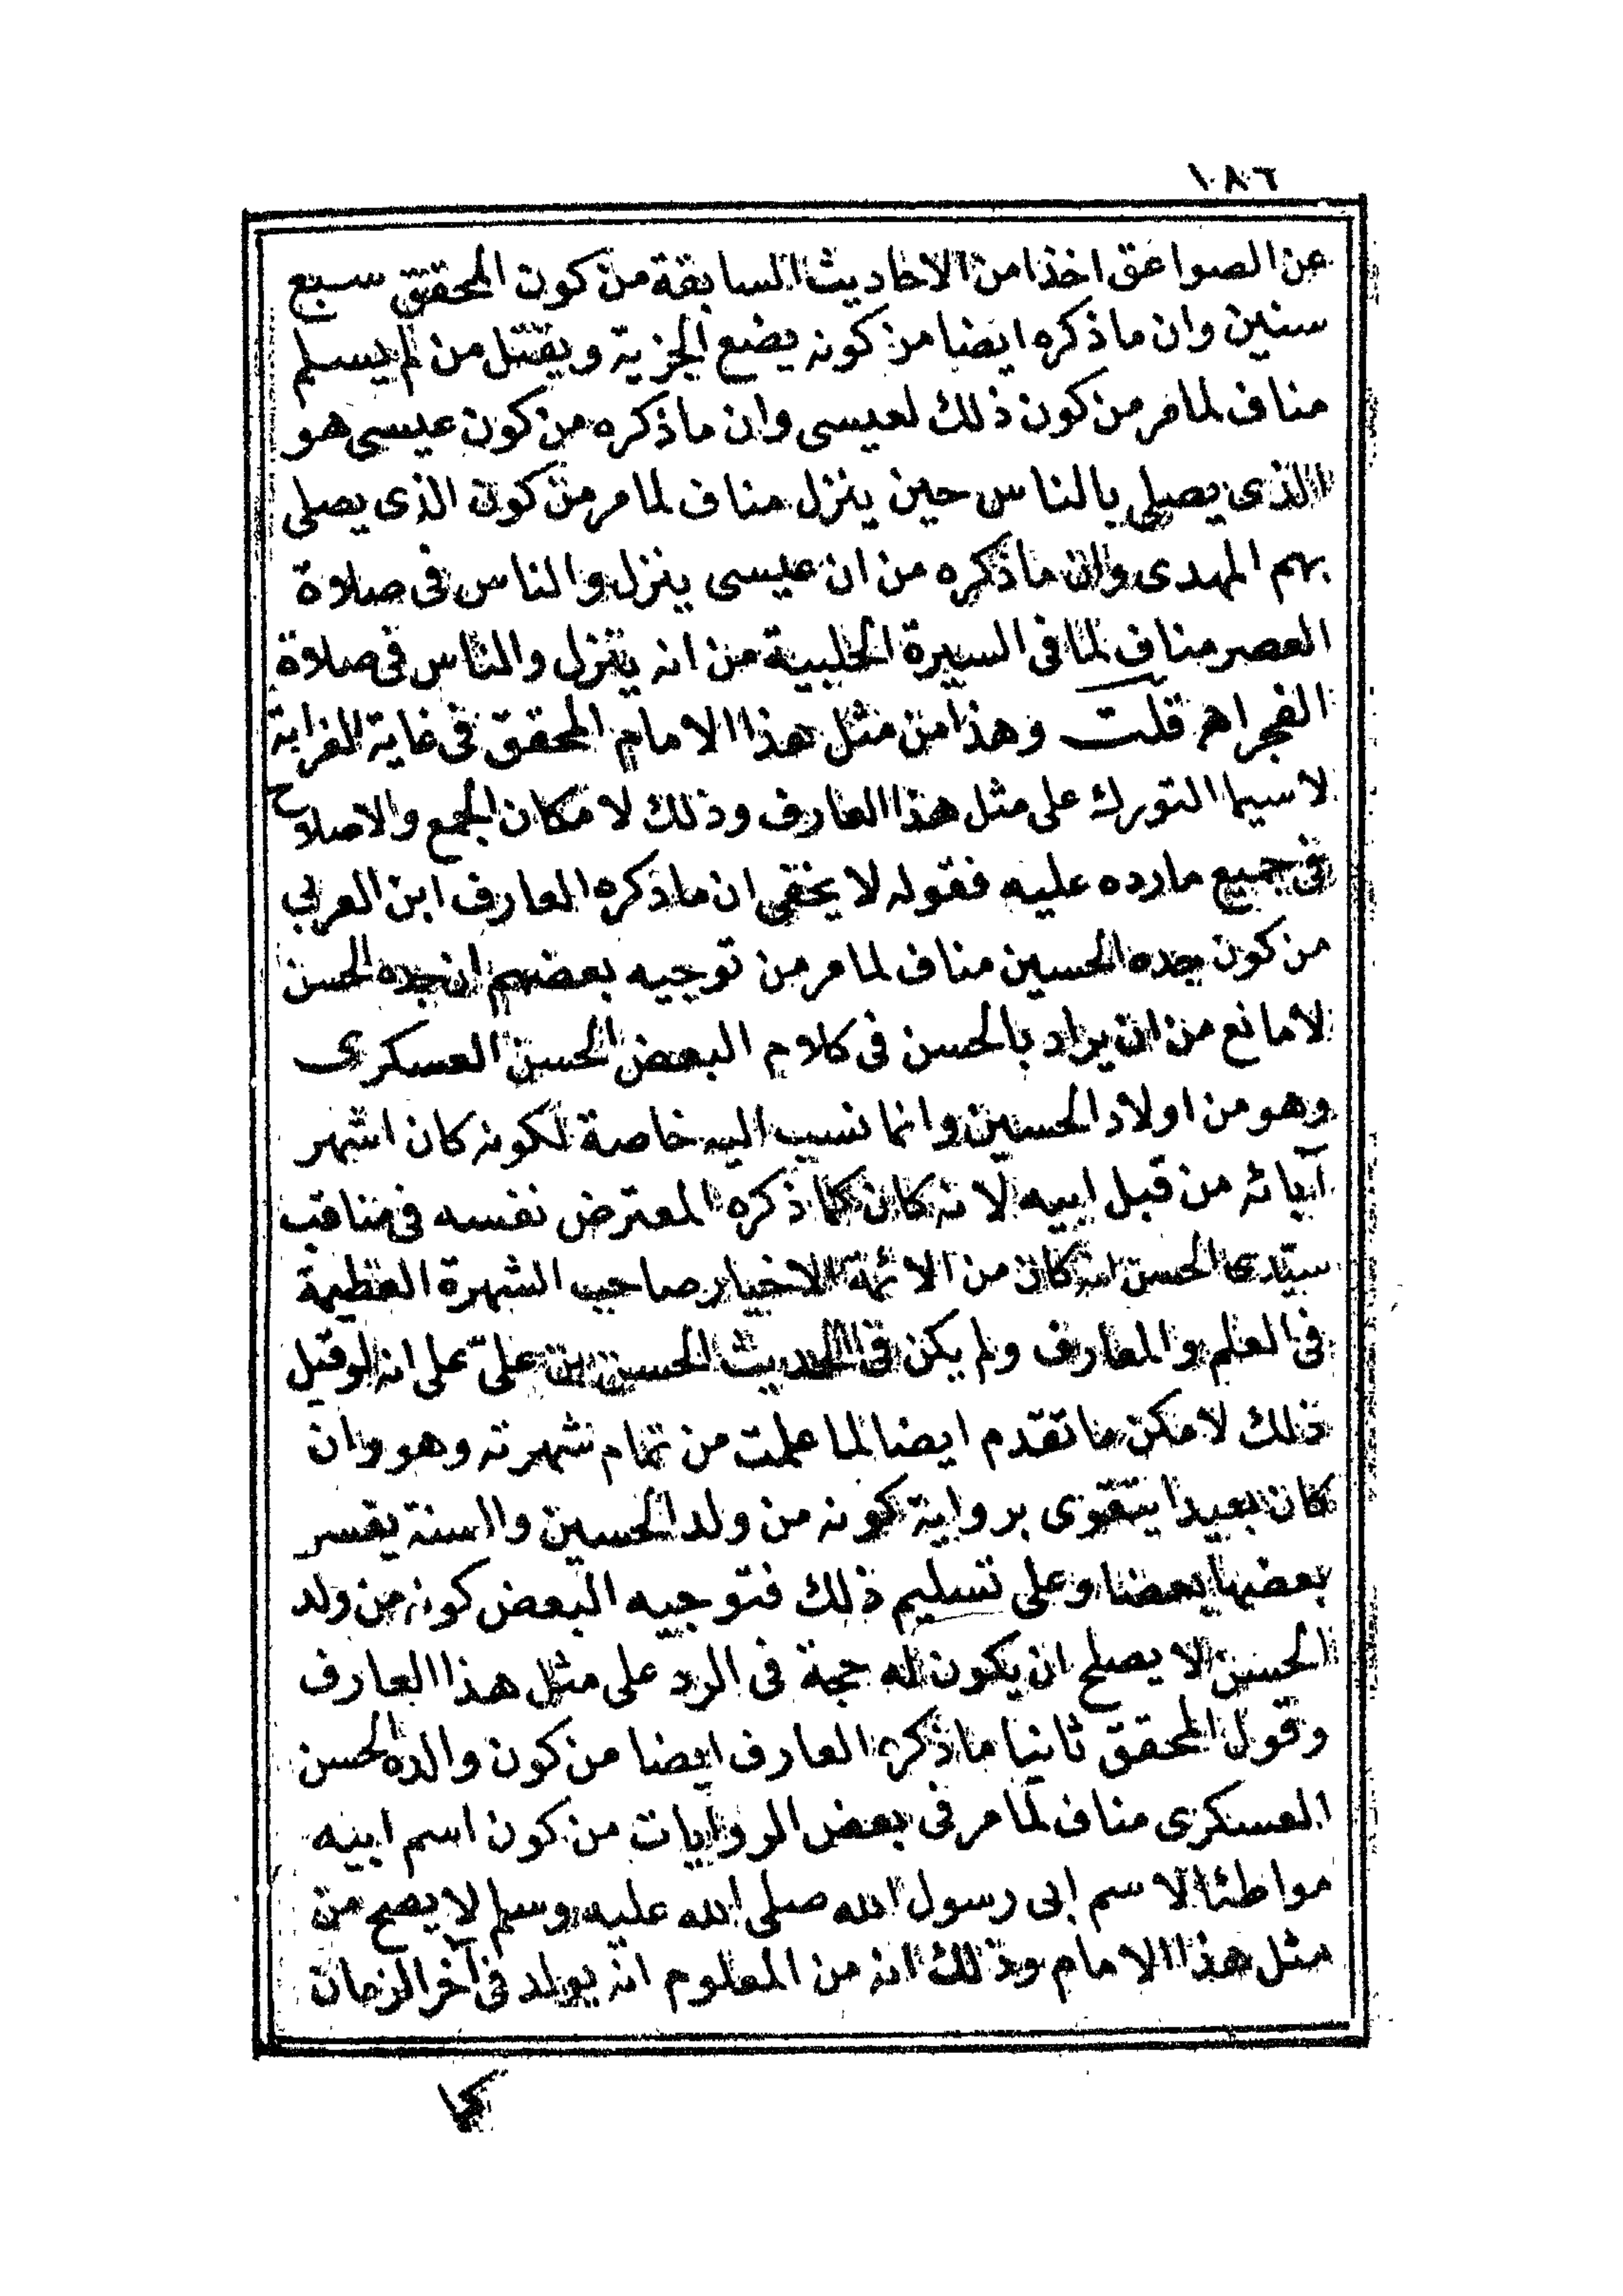 ١٨٦
عن الصواعق اخذا من الاحاديث السابقة من كون المحقق سبع
سنين وان ما ذكره ايضا من كونه يضع الجزية ويقتل من لم يسلم
مناف لما مر من كون ذلك لعيسى وان ما ذكره من كون عيسى هو
الذى يصلى بالناس حين ينزل مناف لما مر من كون الذى يصلى
بهم المهدى وان ما ذكره من ان عيسى ينزل والناس فى صلاة
العصر مناف لما فى السيرة الحلبية من انه ينزل والناس فى صلاة
الفجر اهـ قلت وهذا من مثل هذا الامام المحقق فى غاية الغرابة
لا سيما التورك على مثل هذا العارف وذلك لامكان الجمع والاصلاح
فى جميع ما رده عليه فقوله لا يخفى ان ما ذكره العارف ابن العربي
من كون جده الحسين مناف لما مر من توجيه بعضهم ان جده الحسن
لا مانع من ان يراد بالحسن فى كلام البعض الحسن العسكرى
وهو من اولاد الحسين وانما نسب اليه خاصة لكونه كان اشهر
آبائه من قبل ابيه لانه كان كما ذكره المعترض نفسه فى مناقب
سيّدى الحسن انه كان من الائمة الاخيار صاحب الشهرة العظيمة
فى العلم والمعارف ولم يكن فى الحديث الحسن بن علىّ على انه لو قيل
ذلك لامكن ما تقدم ايضا لما علمت من تمام شهرته وهو وان
كان بعيدا يتقوى برواية كونه من ولد الحسين والسنة يفسر
بعضها بعضا وعلى تسليم ذلك فتوجيه البعض كونه من ولد
الحسن لا يصلح ان يكون له حجة فى الرد على مثل هذا العارف
وقول المحقق ثانيا ما ذكره العارف ايضا من كون والده الحسن
العسكرى مناف لما مر فى بعض الروايات من كون اسم ابيه
مواطئا لاسم ابى رسول الله صلى الله عليه وسلم لا يصح من
مثل هذا الامام وذلك انه من المعلوم انه يولد فى آخر الزمان
كما